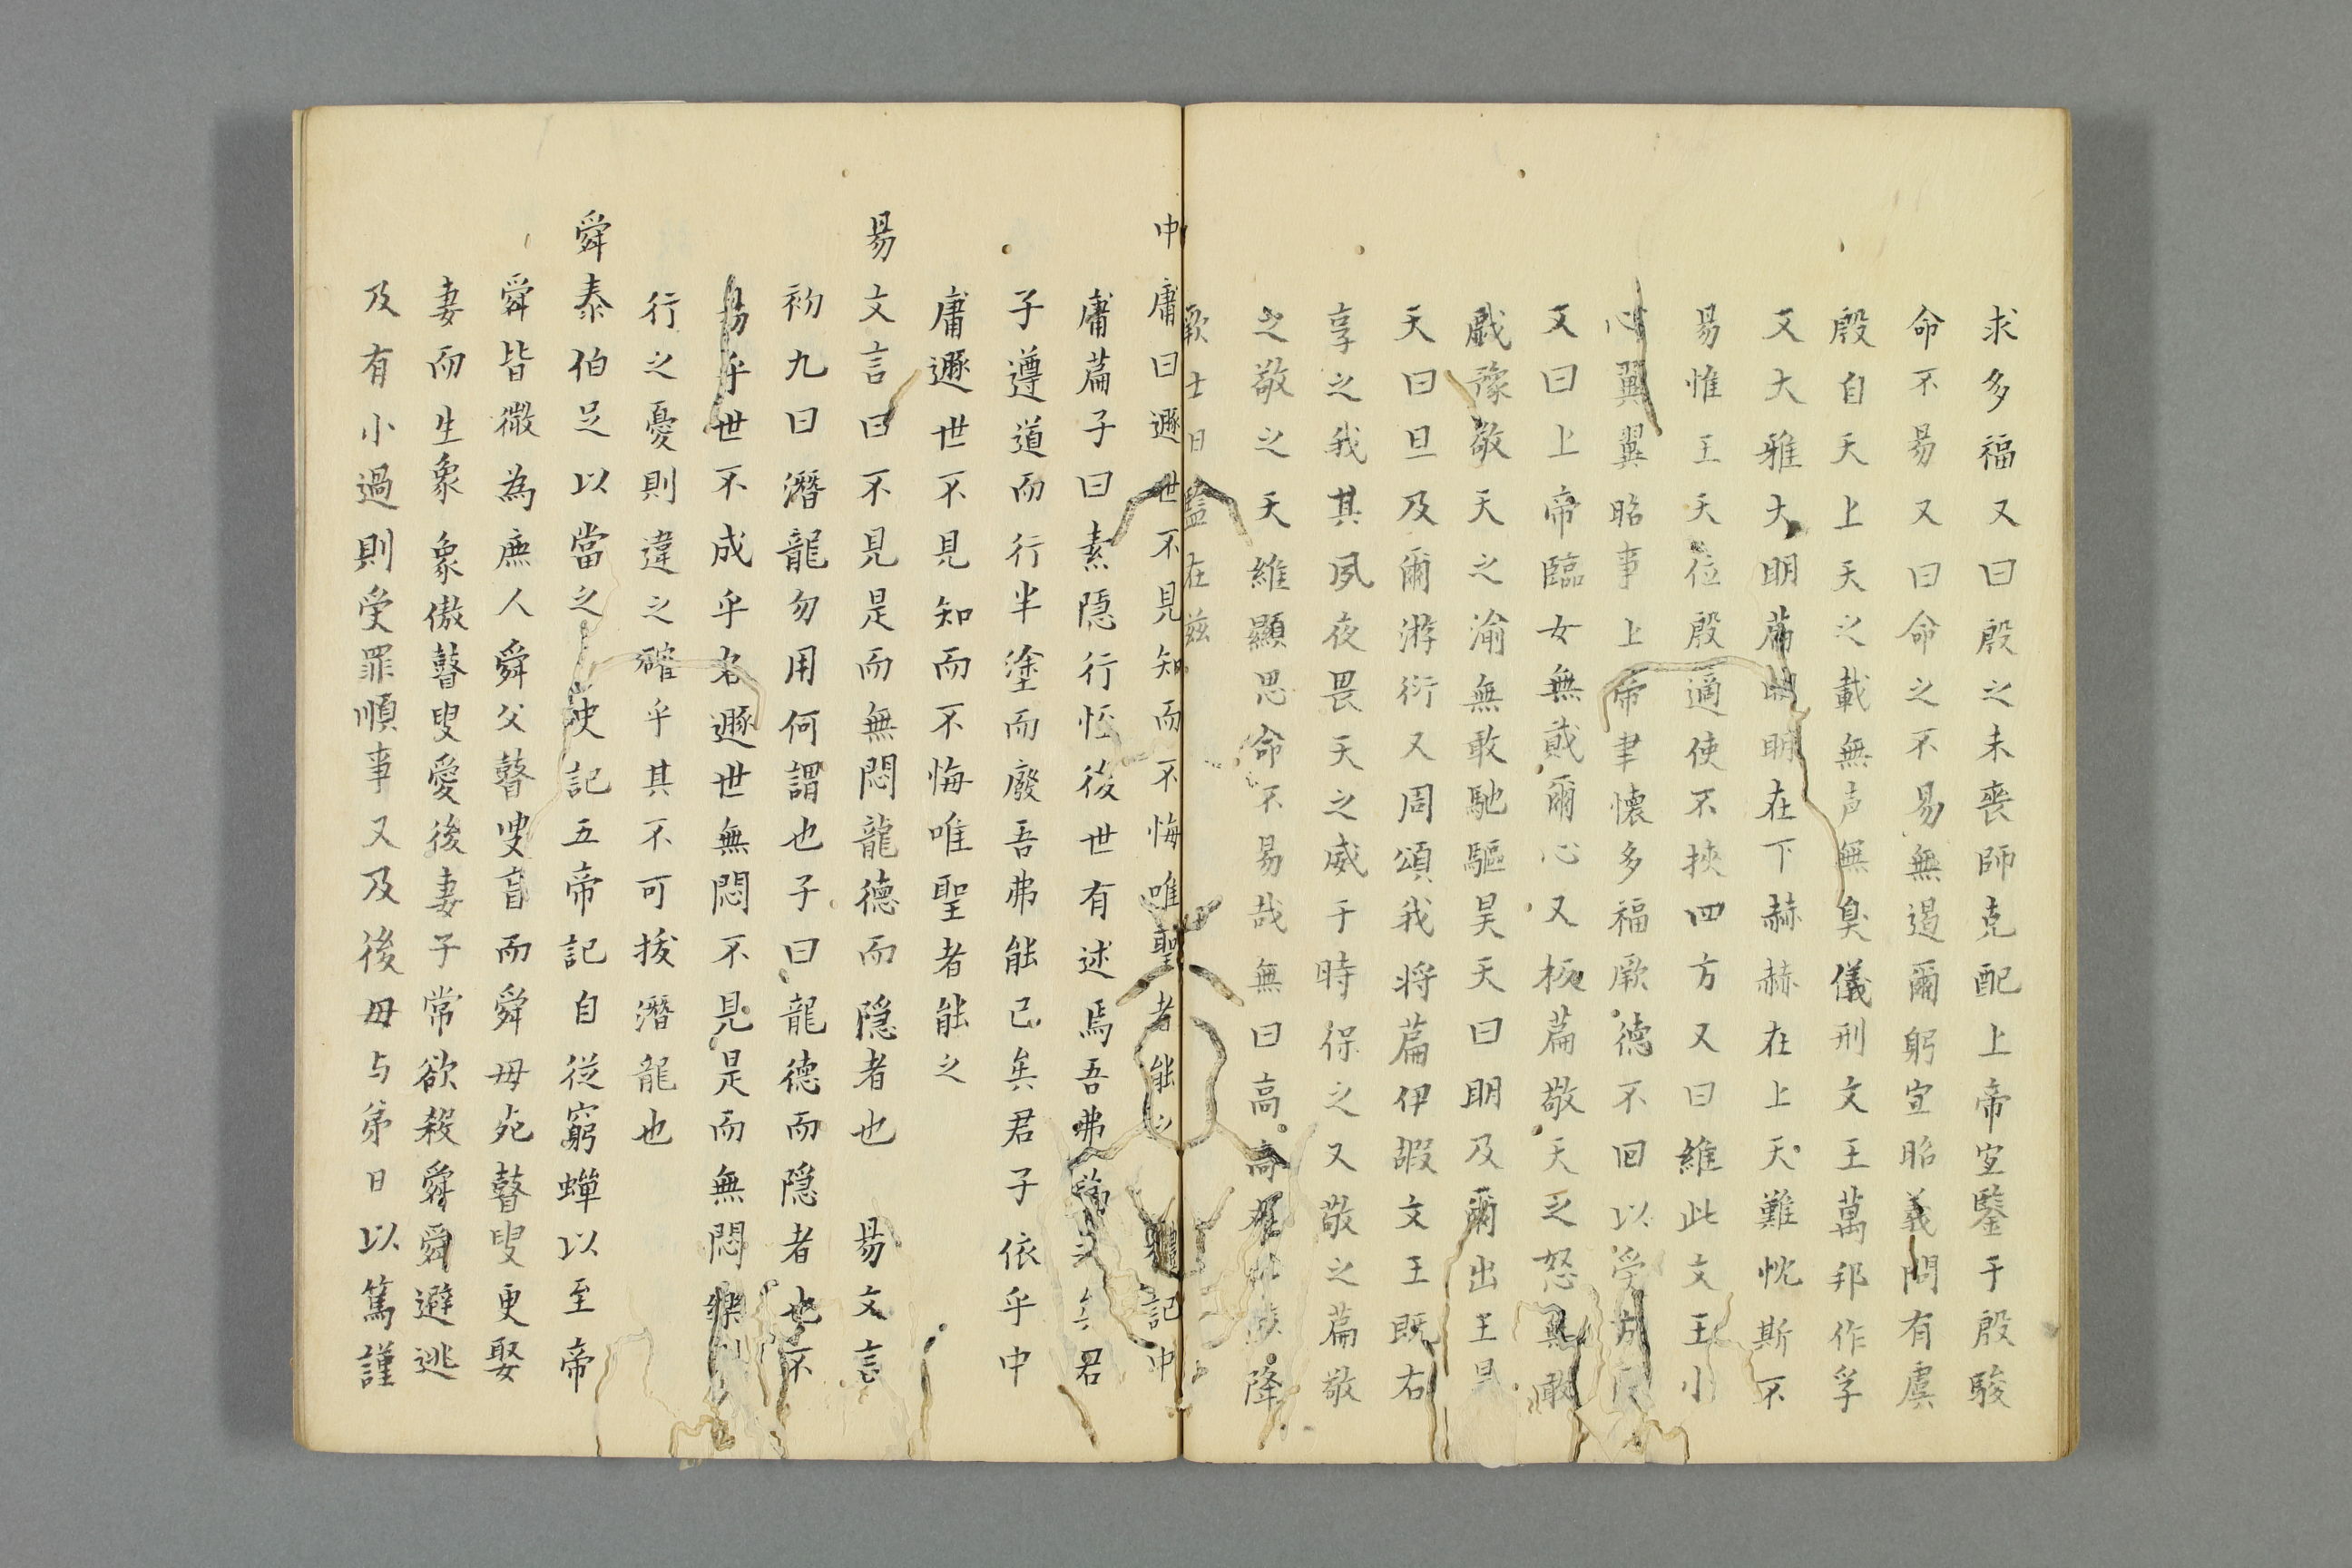 求多福又曰殷之未喪師克配上帝宜鑒于殷駿
命不易又曰命之不易無遏爾躬宣昭義問有虞
殷自天上天之載無声無臭儀刑文王萬邦作孚
又大雅大明篇明明在下赫赫在上天難忱斯不
易惟王天位殷適使不挾四方又曰維此文王小
心翼翼昭事上帝聿懷多福厥德不回以受方國
又曰上帝臨女無貳爾心又板篇敬天之怒無敢
戲豫敬天之渝無敢馳驅昊天曰明及爾出王昊
天曰旦及爾游衍又周頌我将篇伊嘏文王既右
享之我其夙夜畏天之威于時保之又敬之篇敬
之敬之天維顯思命不易哉無曰高高在上陟降
厥士日監在茲
中庸曰遯世不見知而不悔唯聖者能之 禮記中
庸篇子曰素隱行怪後世有述焉吾弗為之矣君
子遵道而行半塗而廢吾弗能已矣君子依乎中
庸遯世不見知而不悔唯聖者能之
易文言曰不見是而無悶龍德而隱者也 易文言
初九曰潛龍勿用何謂也子曰龍德而隱者也不
易乎世不成乎名遯世無悶不見是而無悶樂則
行之憂則違之確乎其不可拔潛龍也
舜泰伯足以當之 史記五帝記自從窮蟬以至帝
舜皆微為庶人舜父瞽叟盲而舜母死瞽叟更娶
妻而生象象傲瞽叟愛後妻子常欲殺舜舜避逃
及有小過則受罪順事父及後母与弟日以篤謹